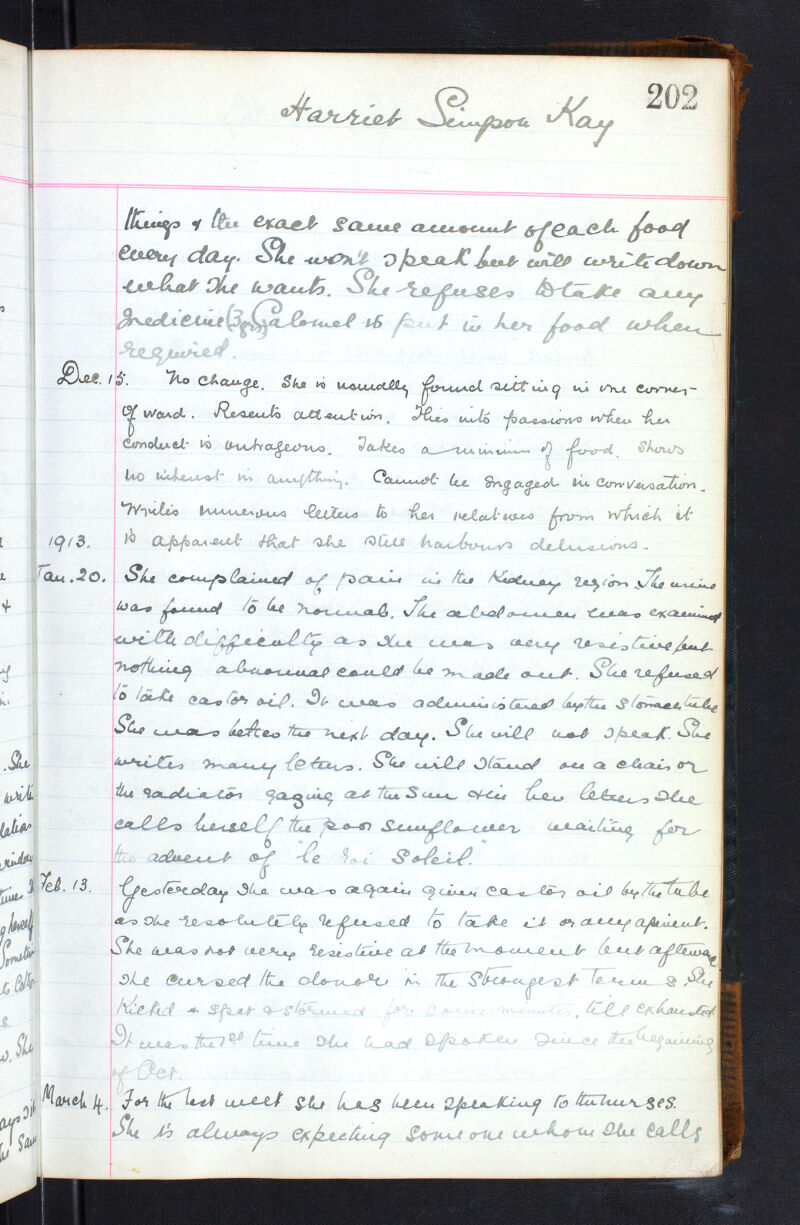 202
Harriet Simpson Kay
things & the exact same amount of each food
every day. She won't speak but will write down
what she wants. She refuses to take any
medicine (3grs) Calomel is put in her food when
required.
Dec. 15. No change. She is usually found sitting in one corner
of ward. Resents attention. Flies into passions when her
conduct is outrageous. Takes a minimum of food. Shows
no interest in anything. Cannot be engaged in conversation.
Writes numerous letters to her relatives from which it
1913. is apparent that she still harbours delusions.
Jan. 20. She complained of pain in the Kidney region. The urine
was found to be normal. The abdomen was examined
with difficulty as she was very resistive but
nothing abnormal could be made out. She refused
to take castor oil. It was administered by the stomach tube
She was better the next day. She will not speak. She
writes many letters. She will stand on a chair or
the radiator gazing at the Sun & in her letters she
calls herself the poor sunflower waiting for
the advent of "le roi soleil."
Feb. 13. Yesterday she was again given castor oil by the tube
as she resolutely refused to take it or any aperient.
She was not very resistive at the moment but afterward
she cursed the donor in the strongest terms. She
Kicked & spat & stormed for some minutes, till exhausted
It was the 1st time she had spoken since the beginning
of Oct.
March 4. For the last week she has been speaking to the nurses.
She is always expecting some one whom she calls